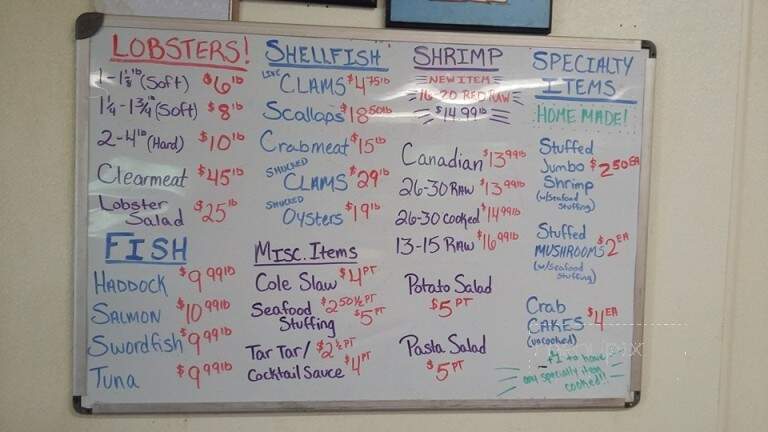 LOBSTERS!
1-1⅛ lb (Soft) $6 lb
1¼-1¾ lb (Soft) $8 lb
2-4 lb (Hard) $10 lb
Clearmeat $45 lb
Lobster
Salad $25 lb
FISH
HADDOCK $9 99 lb
SALMON $10 99 lb
Swordfish $9 99 lb
Tuna $9 99 lb
SHELLFISH
LIVE CLAMS $4 75 lb
Scallops $18 50 lb
Crabmeat $15 lb
SHUCKED
CLAMS $29 lb
SHUCKED
Oysters $19 lb
MISC. Items
Cole Slaw $4 PT
Seafood $2 50 ½ PT
Stuffing $5 PT
TAR TAR/ $2 ½ PT
Cocktail Sauce $4 PT
SHRIMP
NEW ITEM
16-20 RED RAW
$14.99 lb
Canadian $13 99 lb
26-30 RAW $13 99 lb
26-30 cooked $14 99 lb
13-15 RAW $16 99 lb
Potato Salad
$5 PT
Pasta Salad
$5 PT
SPECIALTY
ITEMS
HOME MADE!
Stuffed
Jumbo $2 50 EA
Shrimp
(w/seafood
stuffing)
Stuffed
MUSHROOMS $2 EA
(w/seafood
stuffing)
Crab
CAKES $4 EA
(uncooked)
+$1 to have
any specialty item
cooked!!